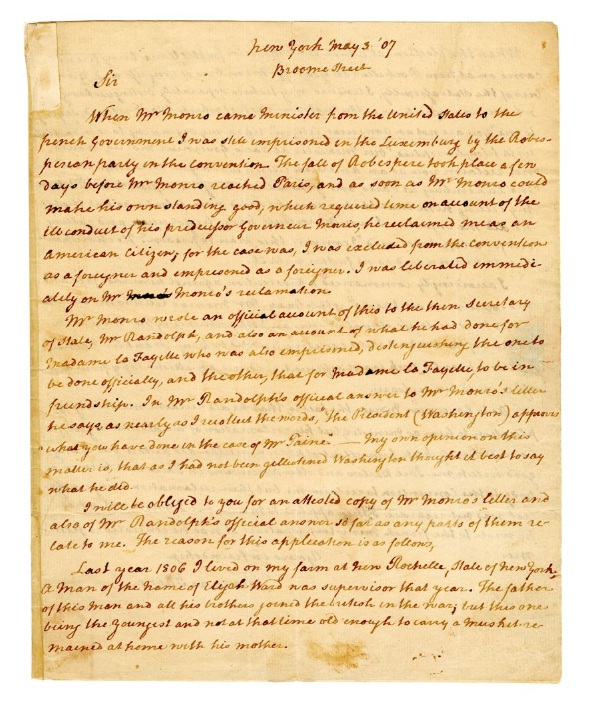 New York May 3 '07
Broome Street
Sir
When Mr Monro came Minister from the United States to the
french Government I was still imprisoned in the Luxemburg by the Robes-
perian party in the convention. The fall of Robespere took place a few
days before Mr Monro reached Paris, and as soon as Mr Monro could
make his own standing good, which required time on account of the
ill conduct of his predecessor Governeur Moris, he reclaimed me as an
American Citizen; for the case was, I was excluded from the convention
as a foreigner and emprisoned as a foreigner. I was liberated immedi-
ately on Mr Monro's reclamation.
Mr Monro wrote an official account of this to the then Secretary
of State, Mr Randolph, and also an account of what he had done for
Madame la Fayette who was also emprisoned, distinguishing the one to
be done officially, and the other, that for Madame la Fayette, to be in
friendship. In Mr Randolph's official answer to Mr Monro's letter
he says, as nearly as I recollect the words, "The President (Washington) approves
what you have done in the case of Mr Paine." — My own opinion on this
matter is, that as I had not been guillotined Washington thought it best to say
what he did.
I will be obliged to you for an attested copy of Mr Monro's letter and
also of Mr Randolph's official answer so far as any parts of them re-
late to me. The reason for this application is as follows,
Last year 1806 I lived on my farm at New Rochelle, State of New York.
A man of the name of Elijah Ward was supervisor that year. The father
of this man and all his brothers joined the british in the war; but this one
being the youngest and not at that time old enough to carry a musket re-
mained at home with his mother.